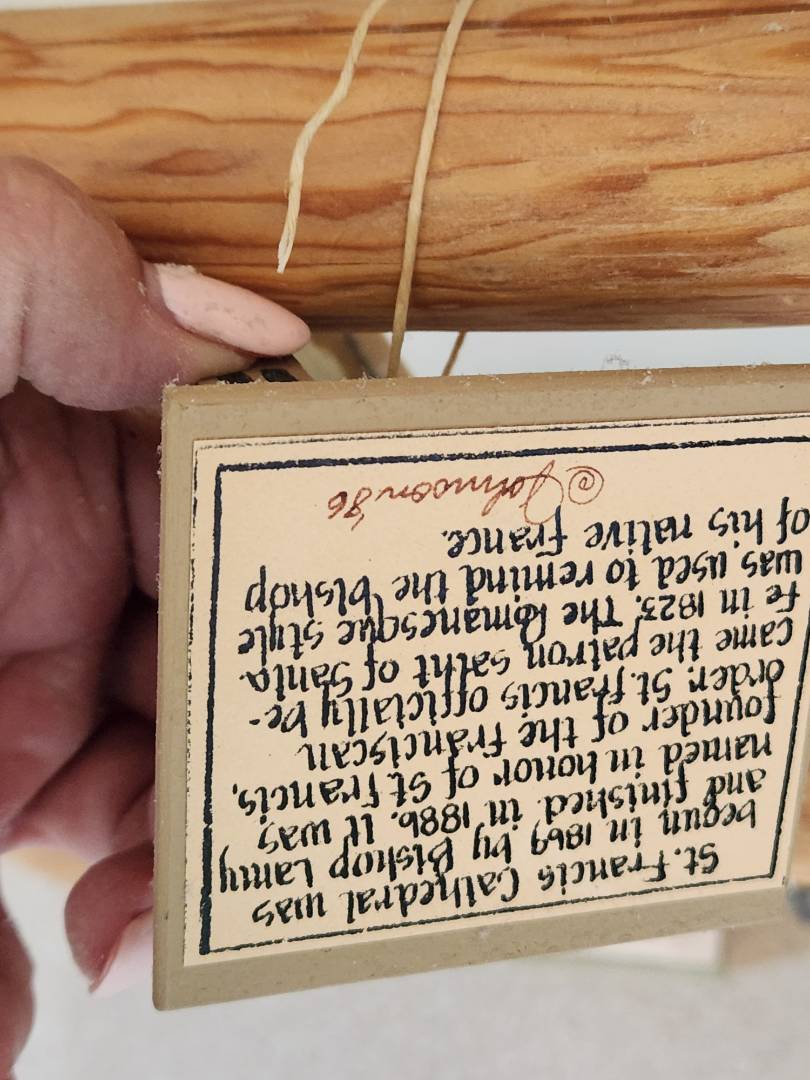 St. Francis Cathedral was
begun in 1869 by Bishop Lamy
and finished in 1886. It was
named in honor of St Francis,
founder of the Franciscan
order. St. Francis officially be-
came the patron saint of Santa
Fe in 1823. The Romanesque style
was used to remind the bishop
of his native France.
©Johnson '86